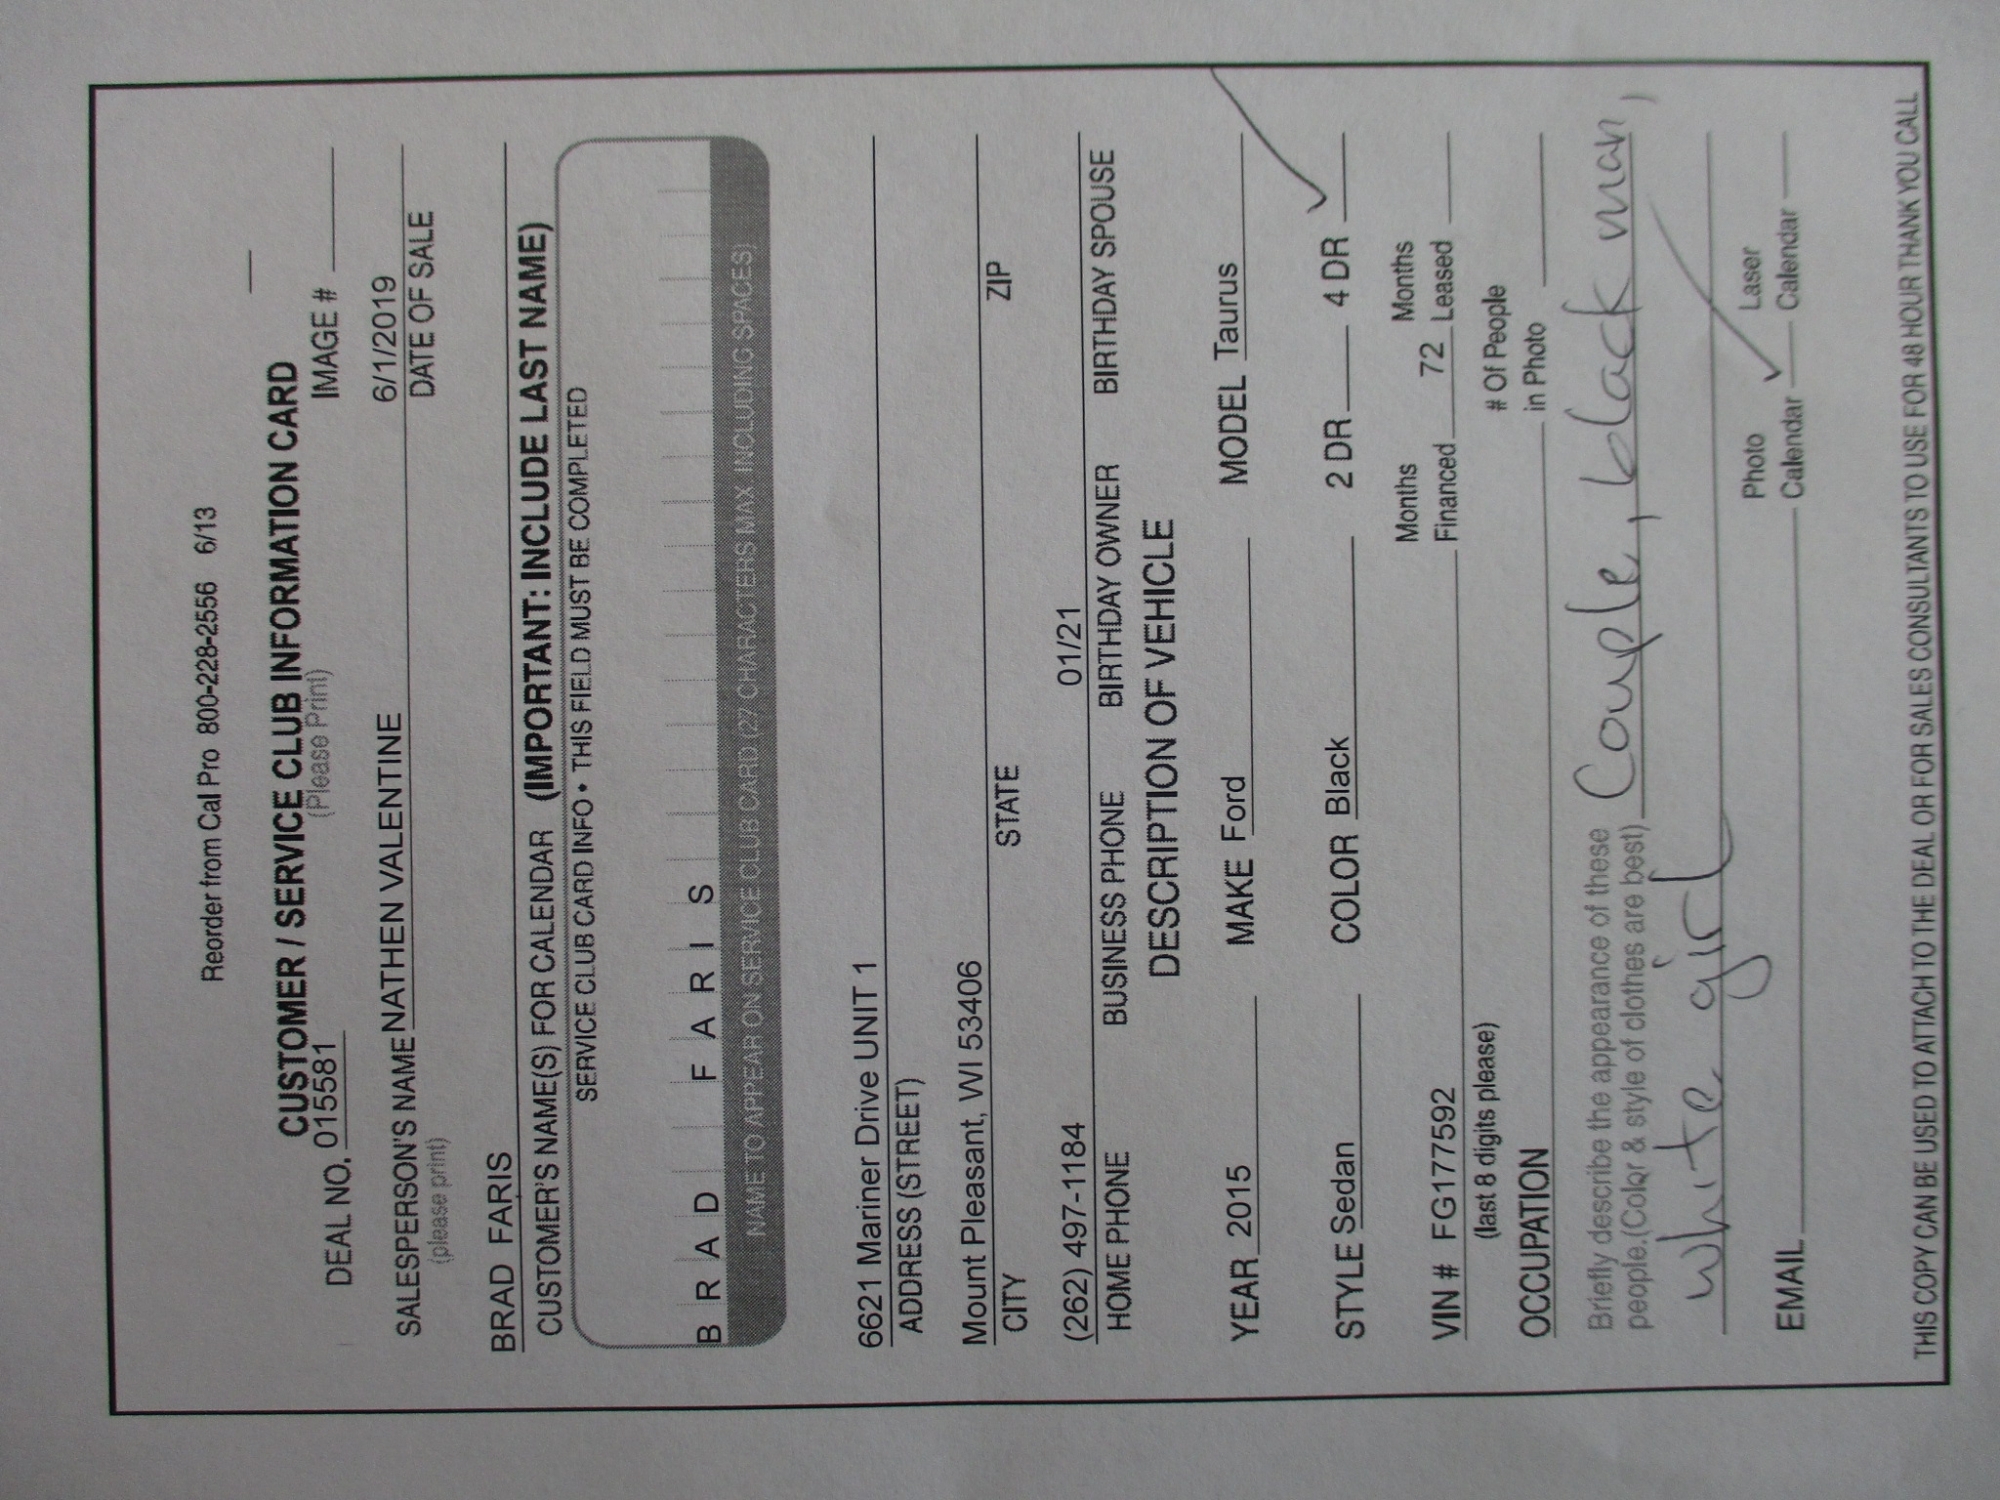 Reorder from Cal Pro 800-228-2556 6/13
CUSTOMER / SERVICE CLUB INFORMATION CARD
(Please Print)
DEAL NO. 015581 IMAGE #
SALESPERSON'S NAME NATHEN VALENTINE 6/1/2019
(please print) DATE OF SALE
BRAD FARIS
CUSTOMER'S NAME(S) FOR CALENDAR (IMPORTANT: INCLUDE LAST NAME)
SERVICE CLUB CARD INFO • THIS FIELD MUST BE COMPLETED
B R A D F A R I S
NAME TO APPEAR ON SERVICE CLUB CARD (27 CHARACTERS MAX INCLUDING SPACES)
6621 Mariner Drive UNIT 1
ADDRESS (STREET)
Mount Pleasant, WI 53406
CITY STATE ZIP
(262) 497-1184 01/21
HOME PHONE BUSINESS PHONE BIRTHDAY OWNER BIRTHDAY SPOUSE
DESCRIPTION OF VEHICLE
YEAR 2015 MAKE Ford MODEL Taurus
STYLE Sedan COLOR Black 2 DR 4 DR ✓
Months Months
VIN # FG177592 Financed 72 Leased
(last 8 digits please) # Of People
OCCUPATION in Photo
Briefly describe the appearance of these
people.(Color & style of clothes are best) Couple, black man,
white girl
Photo Laser
EMAIL Calendar ✓ Calendar
THIS COPY CAN BE USED TO ATTACH TO THE DEAL OR FOR SALES CONSULTANTS TO USE FOR 48 HOUR THANK YOU CALL